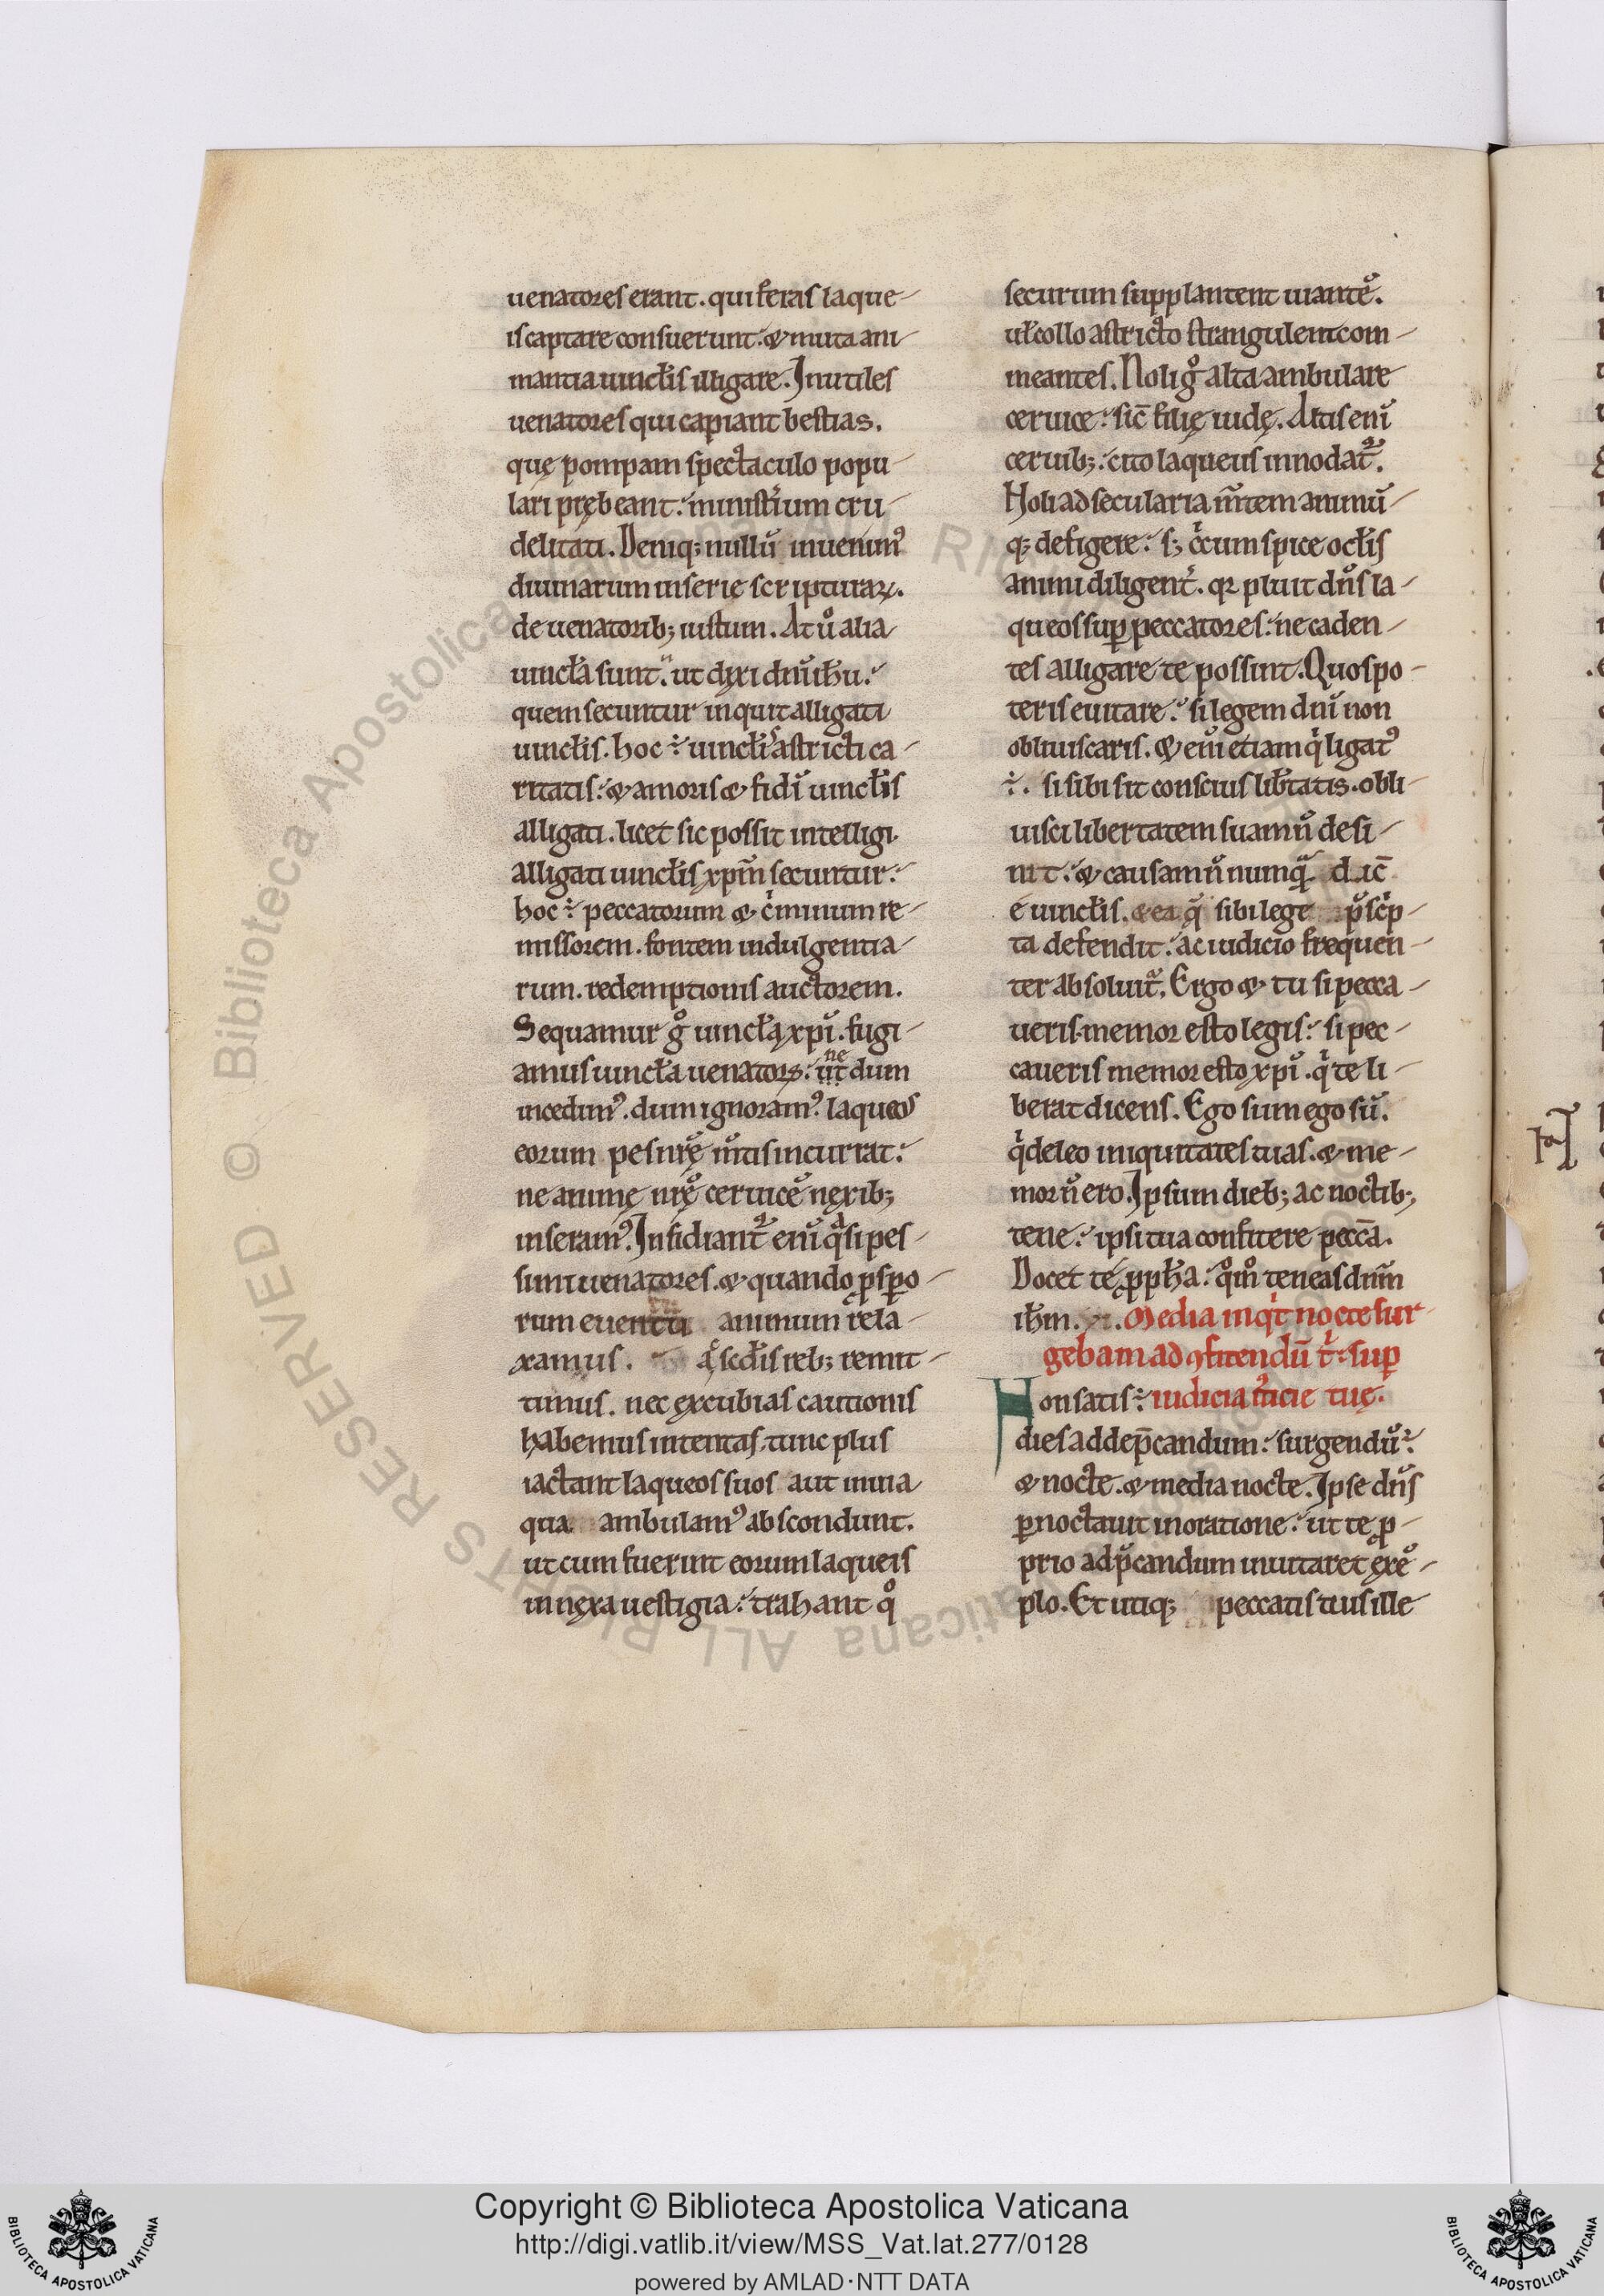 uenatores erant. qui feras laque-
is captare consuerunt: & muta ani-
mantia uincl̃is illigare. Inutiles
uenatores qui capiant bestias.
quę pompam spectaculo popu-
lari prębeant: ministe͛ium cru-
delitati. Deniq; nullũ inuenimꝰ
diuinarum in serie scripturaꝝ.
de uenatorib; iustum. At ůalia
uincl̃a sunt. ut dixi dñi ihũ:
quem secuntur inquit alligati
uincl̃is. hoc ÷ uincl̃is astricti ca-
ritatis: & amoris & fidĩ uincl̃is
alligati. licet sic possit intelligi
alligati uincl̃is xp̃m secuntur:
hoc ÷ peccatorum & cͥminum re-
missorem. fontem indulgentia-
rum. redemptionis auctorem.
Sequamur gͦ uincl̃a xp̃i. fugi-
amus uincl̃a uenatorꝝ: ne ut dum
incedimꝰ. dum ignoramꝰ laqueos
eorum pes nr̃ę m̃tis incurrat:
ne animę nr̃ę ceruicẽ nęxib;
inseramꝰ. Insidiantᷣ eni̇̃ qͣsi pes-
simi uenatores. & quando ꝓspo-
rum euentu animum rela-
xamus. qͥ scd̃is reb; remit-
timus. nec excubias cautionis
habemus intentas. tunc plus
iactant laqueos suos aut in uia
qua ambulamꝰ abscondunt.
ut cum fuerint eorum laqueis
innęxa uestigia: trahant qͦ
securum supplantent uiantẽ.
ul̃ collo astricto strangulent com-
meantes. Noli gͦ alta ambulare
ceruice: sic̃ filię iudę. Altis eni̇̃
ceruib;: cito laqueus innodatᷣ.
Noli ad secularia m̃tem animũ-
q; defigere: s; cͥcumspice ocl̃is
animi diligentᷣ. qꝛ pluit dñs la-
queos sup̱ peccatores: ne caden-
tes alligare te possint. Quos po-
teris euitare: si legem dñi non
obliuiscaris. & eni̇̃ etiam qͥ ligatꝰ
÷. si sibi sit conscius lib̃tatis. obli-
uisci libertatem suam n̊ desi-
nit: & causam n̊ numqͣ̃ dic̃
e uincl̃is. & ea qͣ sibi lege p̃scͥp-
ta defendit: ac iudicio frequen-
ter absoluitᷣ. Ergo & tu si pecca-
ueris. memor esto legis: si pec-
caueris memor esto xp̃i. qͥ te li-
berat dicens. Ego sum ego sũ.
qͥ deleo iniquitates tuas. & me-
mor n̊ ero. Ipsum dieb; ac noctib;
tene: ipsi tua confitere pecc̃a.
Docet te ꝓph̃a: qͦm̊ teneas dñm
ih̃m. Media inqͥt nocte sur-
gebam ad ꝯfitendũ tͥ: sup̱
Non satis ÷: iudicia iꝰticie tuę.
dies ad dep̃candum: surgendũ ÷:
& nocte. & media nocte. Ipse dñs
p̱noctauit in oratione: ut te ꝓ-
prio ad p̃candum inuitaret ęxẽ-
plo. Et utiq; peccatis tuis ille
Copyright © Biblioteca Apostolica Vaticana
http://digi.vatlib.it/view/MSS_Vat.lat.277/0128
powered by AMLAD·NTT DATA